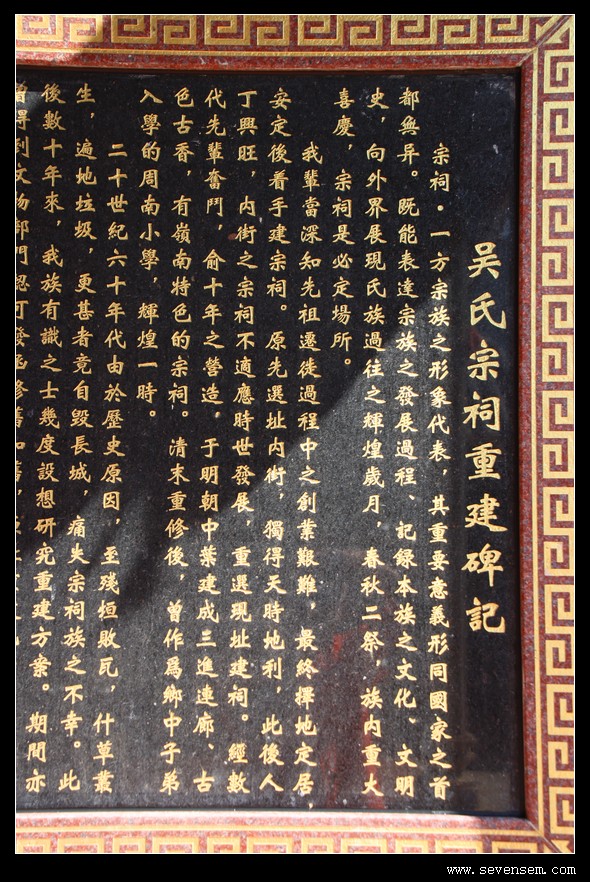 吴氏宗祠重建碑記
宗祠·一方宗族之形象代表，其重要意義形同國家之首
都無异。既能表達宗族之發展過程、記録本族之文化、文明
史，向外界展現氏族過往之輝煌歲月，春秋二祭，族内重大
喜慶，宗祠是必定場所。
我輩當深知先祖遷徙過程中之創業艱難，最終擇地定居，
安定後着手建宗祠。原先選址内街，獨得天時地利，此後人
丁興旺，内街之宗祠不適應時世發展，重選現址建祠。經數
代先輩奮鬥，俞十年之營造，于明朝中葉建成三進連廊、古
色古香，有嶺南特色的宗祠。清末重修後，曾作爲鄉中子弟
入學的周南小學，輝煌一時。
二十世紀六十年代由於歷史原因，至殘桓敗瓦，什草叢
生，遍地垃圾，更甚者竟自毀長城，痛失宗祠族之不幸。此
後數十年來，我族有識之士幾度設想研究重建方案。期間亦
曾得到文物部門認可發函修舊如舊，
www.sevensem.com